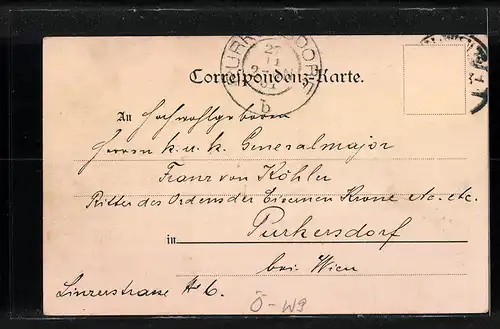 PURKERSDORF
27
11
01
b
Correspondenz-Karte.
An Hochwohlgeboren
Herrn k. u. k. Generalmajor
Franz von Köhler
Ritter des Ordens der Eisernen Krone etc. etc.
in Purkersdorf
bei Wien
Linzerstrasse № 6.
Ö-W9